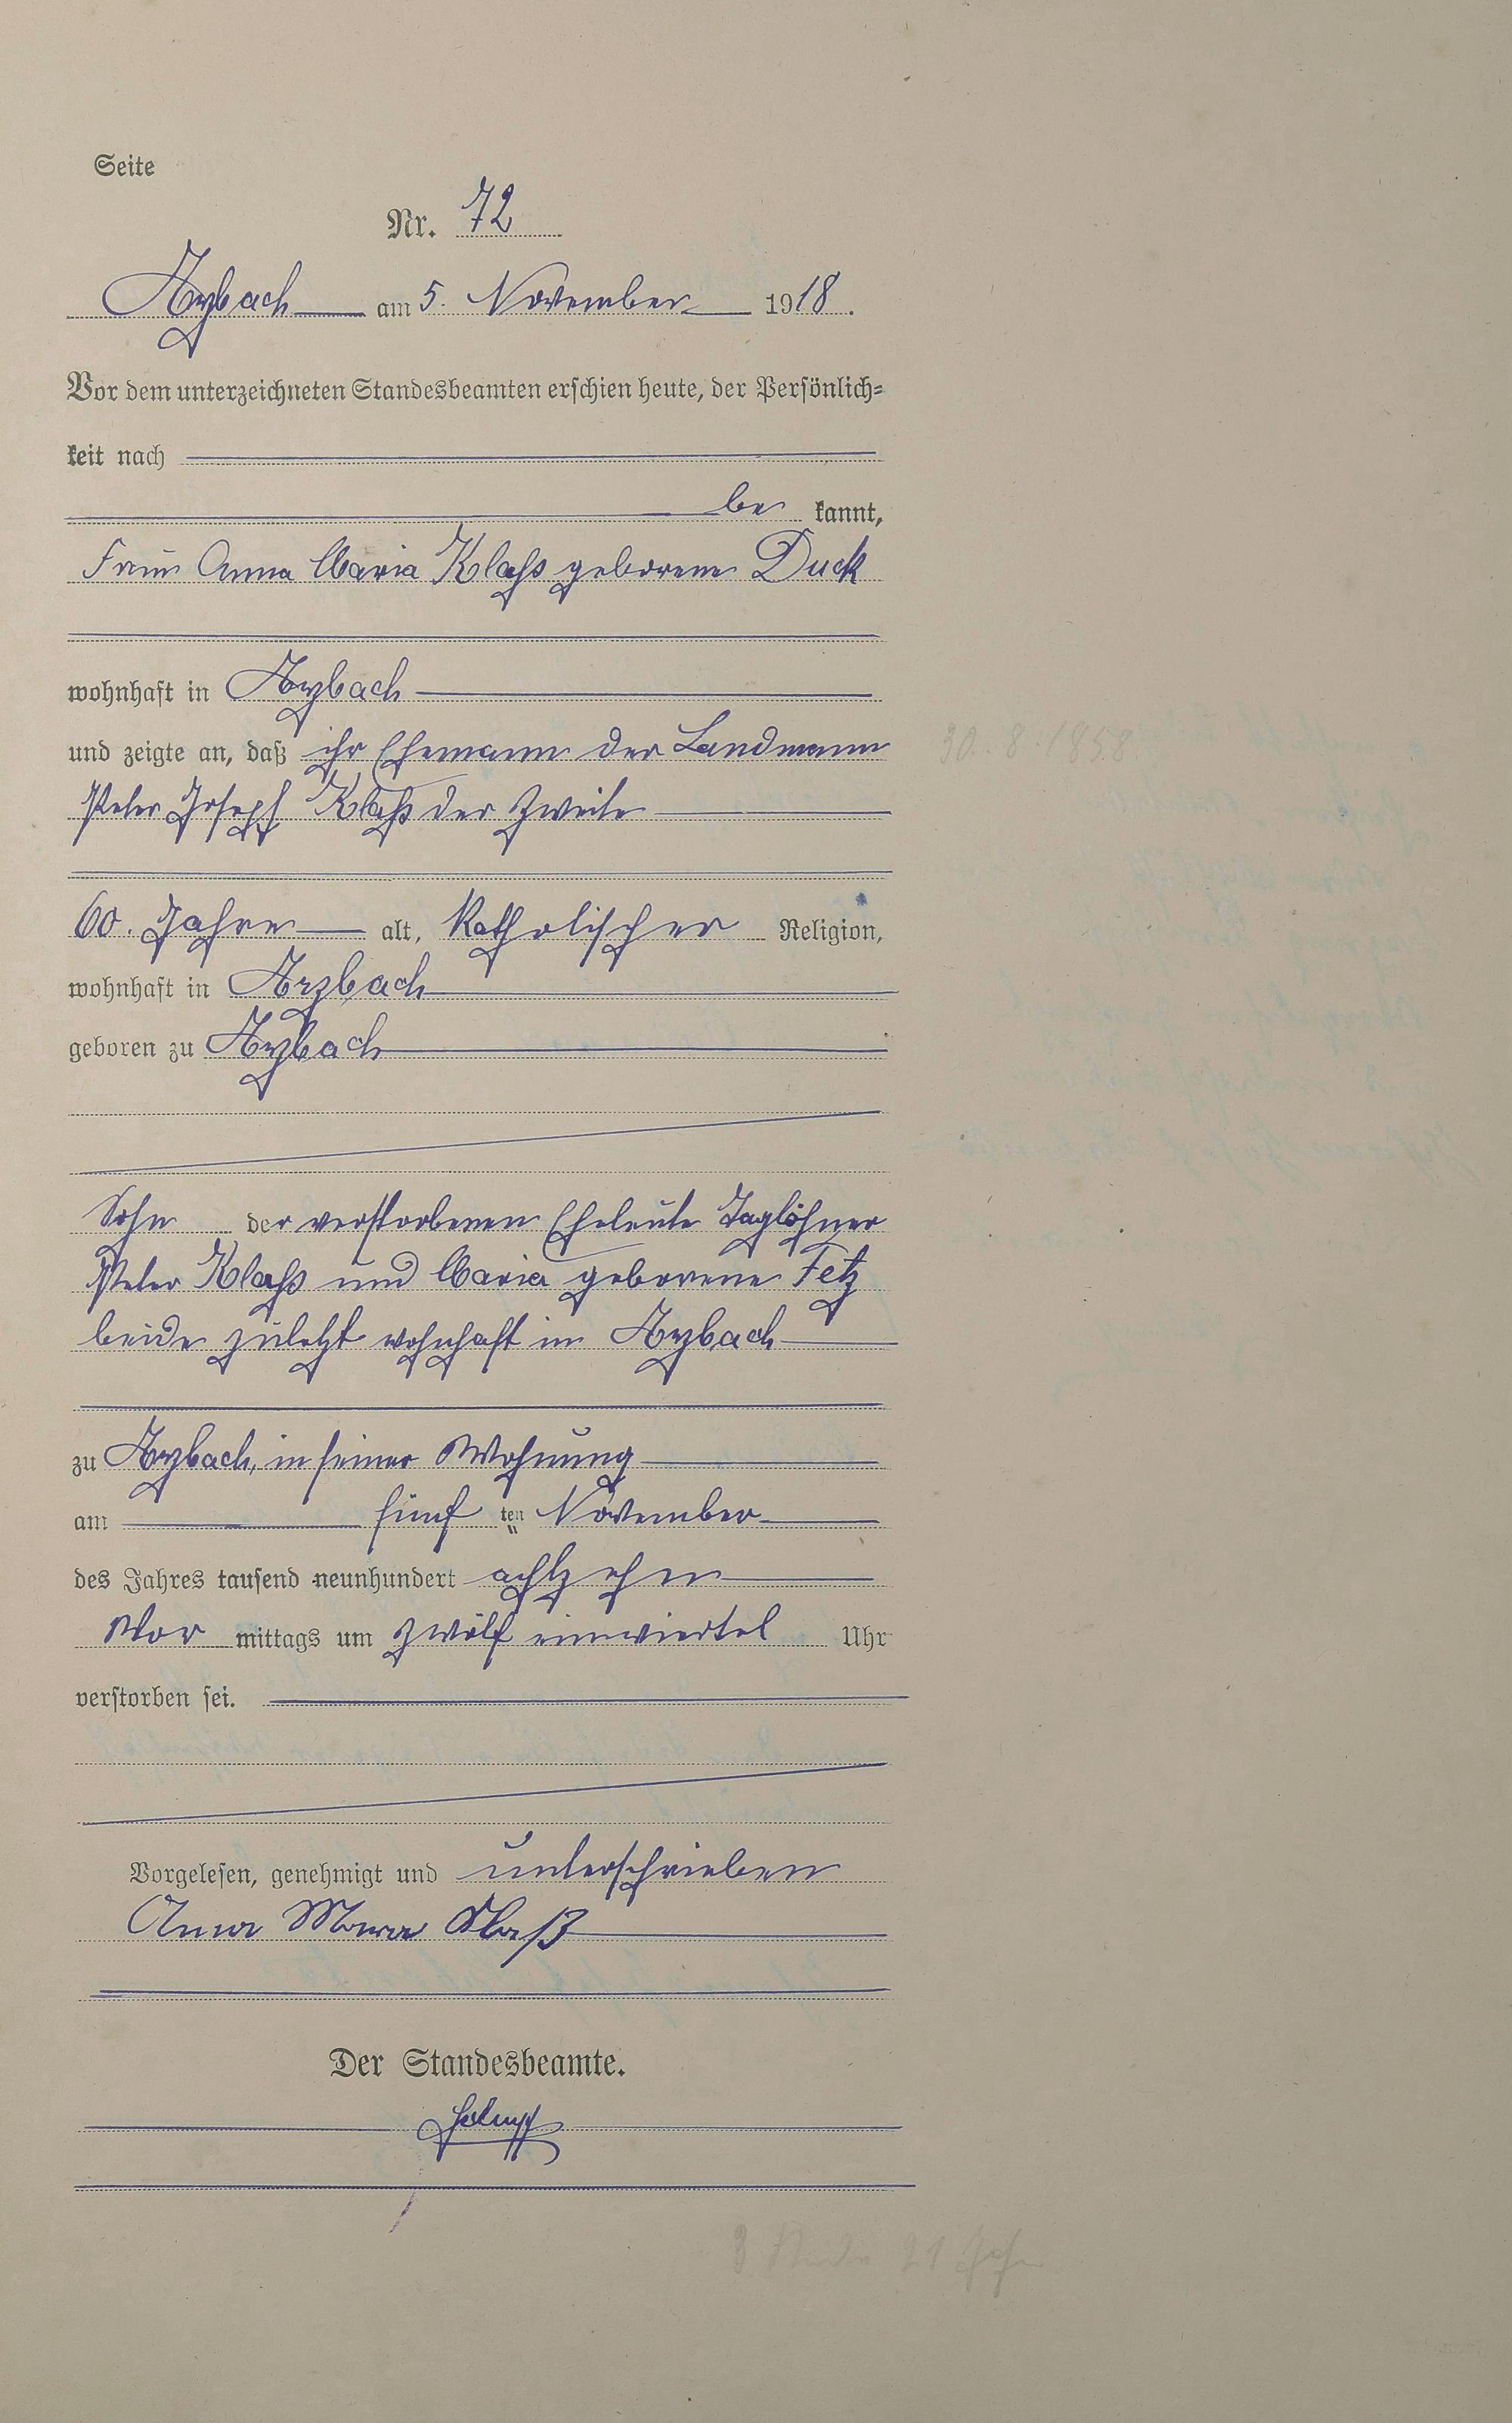 Seite
Nr. 72
Arzbach am 5. November 1918.
Vor dem unterzeichneten Standesbeamten erschien heute, der Persönlich=
keit nach
be kannt,
Frau Anna Maria Klaß geborene Duck
wohnhaft in Arzbach
und zeigte an, daß ihr Ehemann der Landmann
30.8.1858
Peter Joseph Klaß der Zweite
60. Jahre alt, katholischer Religion,
wohnhaft in Arzbach
geboren zu Arzbach
Sohn der verstorbenen Eheleute Taglöhner
Peter Klaß und Maria geborene Fetz
beide zuletzt wohnhaft in Arzbach
zu Arzbach, in seiner Wohnung
am fünf ten November
des Jahres tausend neunhundert achtzehn
Vor mittags um zwölf einviertel Uhr
verstorben sei.
Vorgelesen, genehmigt und unterschrieben
Anna Maria Klaß
Der Standesbeamte.
3 21 Jahr